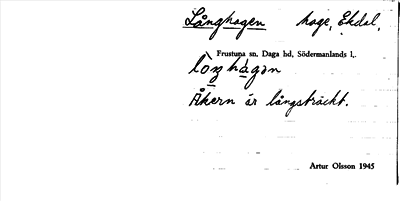 Långhagen hage, Ekdal.
Frustuna sn, Daga hd, Södermanlands l,.
lòŋhàgən
Åkern är långsträckt.
Artur Olsson 1945